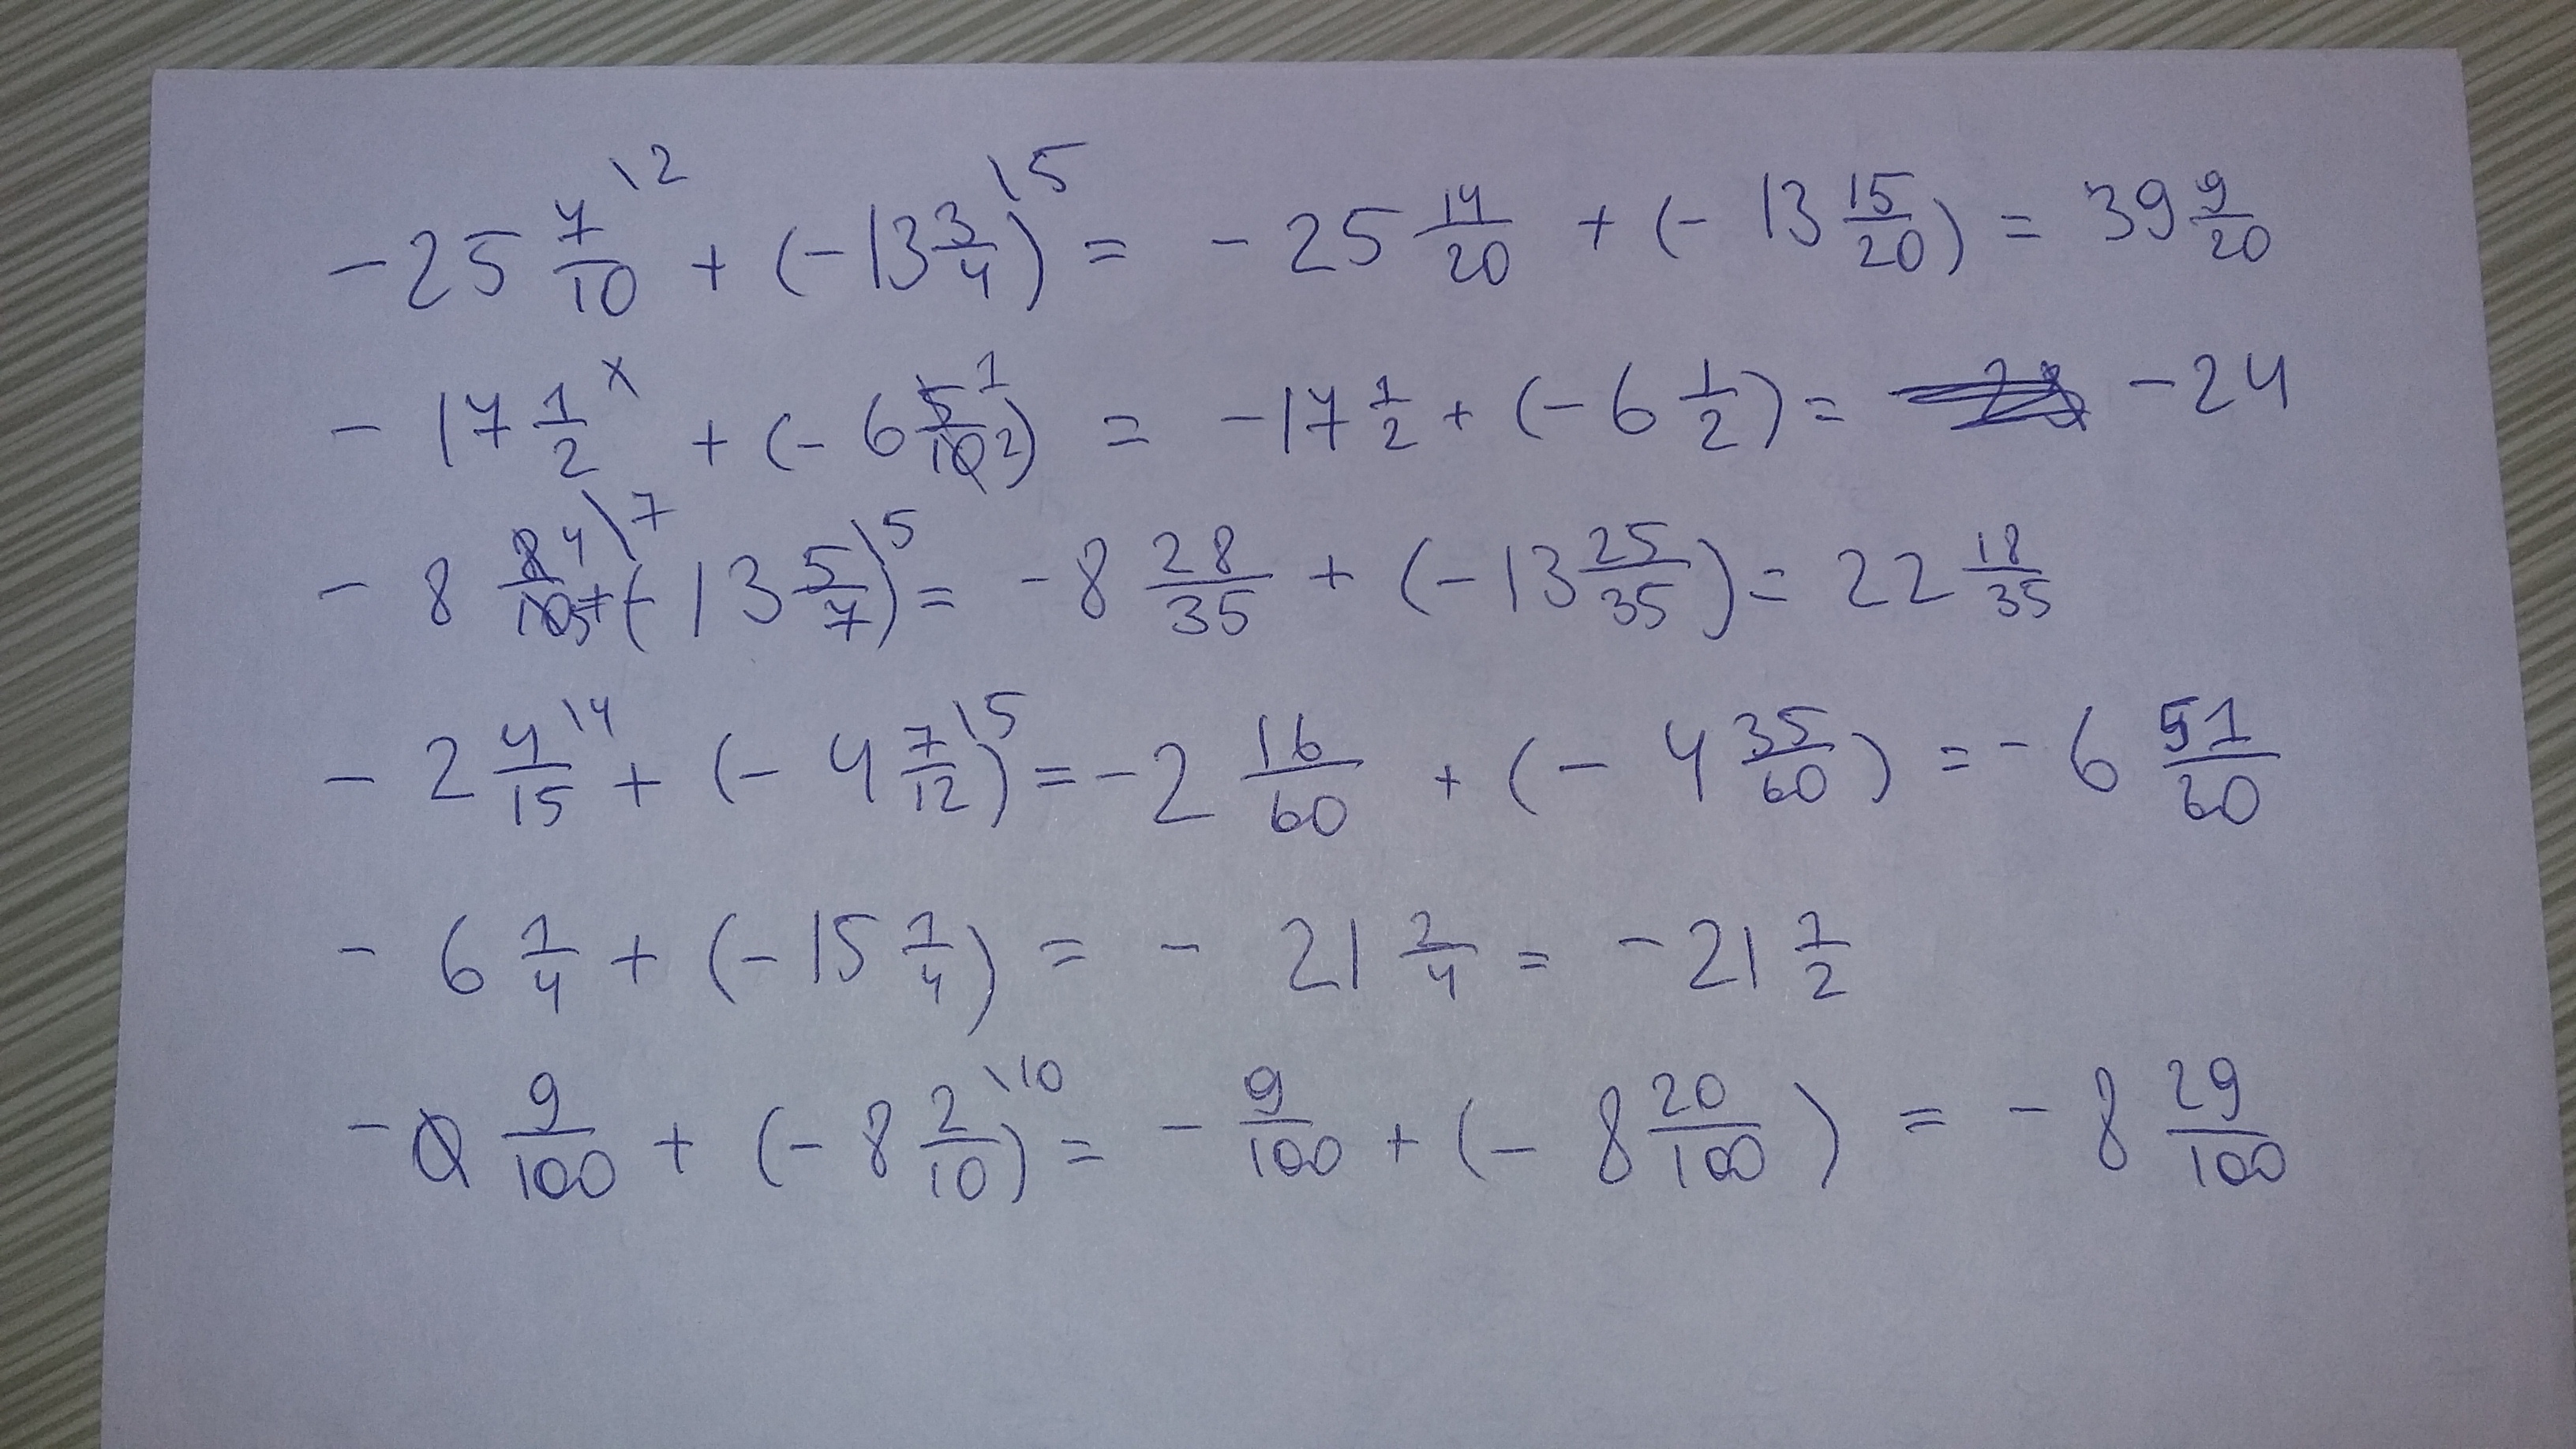 -25 7/10 \2 + (-13 3/4) \5 = -25 14/20 + (-13 15/20) = 39 9/20
-17 1/2 x + (-6 5/10 1/2) = -17 1/2 + (-6 1/2) = -24
-8 8/10 4/5 \7 + (-13 5/7) \5 = -8 28/35 + (-13 25/35) = 22 18/35
-2 4/15 \4 + (-4 7/12) \5 = -2 16/60 + (-4 35/60) = -6 51/60
-6 1/4 + (-15 1/4) = -21 2/4 = -21 1/2
-0 9/100 + (-8 2/10) \10 = -9/100 + (-8 20/100) = -8 29/100